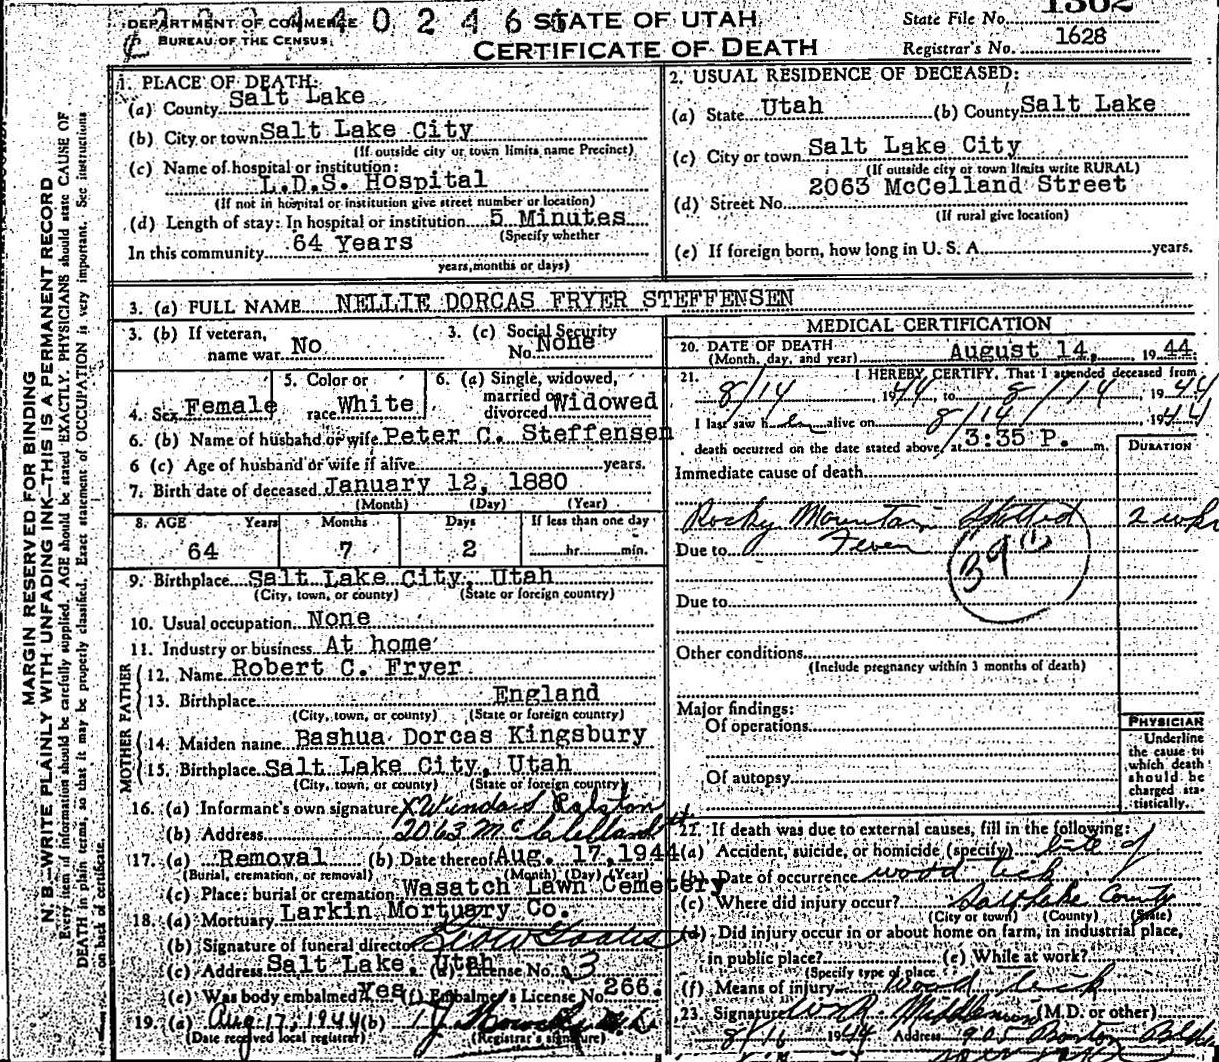 DEPARTMENT OF COMMERCE
BUREAU OF THE CENSUS
STATE OF UTAH
CERTIFICATE OF DEATH
State File No. 1302
Registrar's No. 1628
MARGIN RESERVED FOR BINDING
N. B.—WRITE PLAINLY WITH UNFADING INK—THIS IS A PERMANENT RECORD
Every item of information should be carefully supplied. AGE should be stated EXACTLY. PHYSICIANS should state CAUSE OF
DEATH in plain terms, so that it may be properly classified. Exact statement of OCCUPATION is very important. See instructions
on back of certificate.
1. PLACE OF DEATH:
(a) County Salt Lake
(b) City or town Salt Lake City
(If outside city or town limits name Precinct)
(c) Name of hospital or institution:
L.D.S. Hospital
(If not in hospital or institution give street number or location)
(d) Length of stay: In hospital or institution 5 Minutes
(Specify whether
In this community 64 Years
years, months or days)
2. USUAL RESIDENCE OF DECEASED:
(a) State Utah (b) County Salt Lake
(c) City or town Salt Lake City
(If outside city or town limits write RURAL)
(d) Street No. 2063 McCelland Street
(If rural give location)
(e) If foreign born, how long in U. S. A. years.
3. (a) FULL NAME NELLIE DORCAS FRYER STEFFENSEN
3. (b) If veteran, name war No
3. (c) Social Security No. None
4. Sex Female
5. Color or race White
6. (a) Single, widowed, married or divorced Widowed
6. (b) Name of husband or wife Peter C. Steffensen
6 (c) Age of husband or wife if alive years.
7. Birth date of deceased January 12, 1880
(Month) (Day) (Year)
8. AGE Years Months Days If less than one day
64 7 2 hr. min.
9. Birthplace Salt Lake City, Utah
(City, town, or county) (State or foreign country)
10. Usual occupation None
11. Industry or business At home
FATHER
12. Name Robert C. Fryer
13. Birthplace England
(City, town, or county) (State or foreign country)
MOTHER
14. Maiden name Bashua Dorcas Kingsbury
15. Birthplace Salt Lake City, Utah
(City, town, or county) (State or foreign country)
16. (a) Informant's own signature X Ralston
(b) Address 2063 McClelland St
17. (a) Removal (b) Date thereof Aug. 17, 1944
(Burial, cremation, or removal) (Month) (Day) (Year)
(c) Place: burial or cremation Wasatch Lawn Cemetery
18. (a) Mortuary Larkin Mortuary Co.
(b) Signature of funeral director
(c) Address Salt Lake, Utah (d) License No. 3
(e) Was body embalmed Yes (f) Embalmer's License No. 266.
19. (a) Aug 17, 1944 (b)
(Date received local registrar) (Registrar's signature)
MEDICAL CERTIFICATION
20. DATE OF DEATH
(Month, day, and year) August 14, 1944
21. I HEREBY CERTIFY, That I attended deceased from
8/14 1944, to 8/14, 1944
I last saw her alive on 8/14, 1944
death occurred on the date stated above, at 3:35 P. m.
DURATION
Immediate cause of death
Rocky Mountain Spotted 2 wks
Due to Fever
39(1)
Due to
Other conditions
(Include pregnancy within 3 months of death)
Major findings:
Of operations
Of autopsy
PHYSICIAN
Underline
the cause to
which death
should be
charged sta-
tistically.
22. If death was due to external causes, fill in the following:
(a) Accident, suicide, or homicide (specify) bite of
(b) Date of occurrence wood tick
(c) Where did injury occur? Salt Lake County
(City or town) (County) (State)
(d) Did injury occur in or about home on farm, in industrial place,
in public place? (e) While at work?
(Specify type of place)
(f) Means of injury Wood Tick
23. Signature W.R. Middleton (M.D. or other)
8/16 1944 Address 905 Boston Bldg